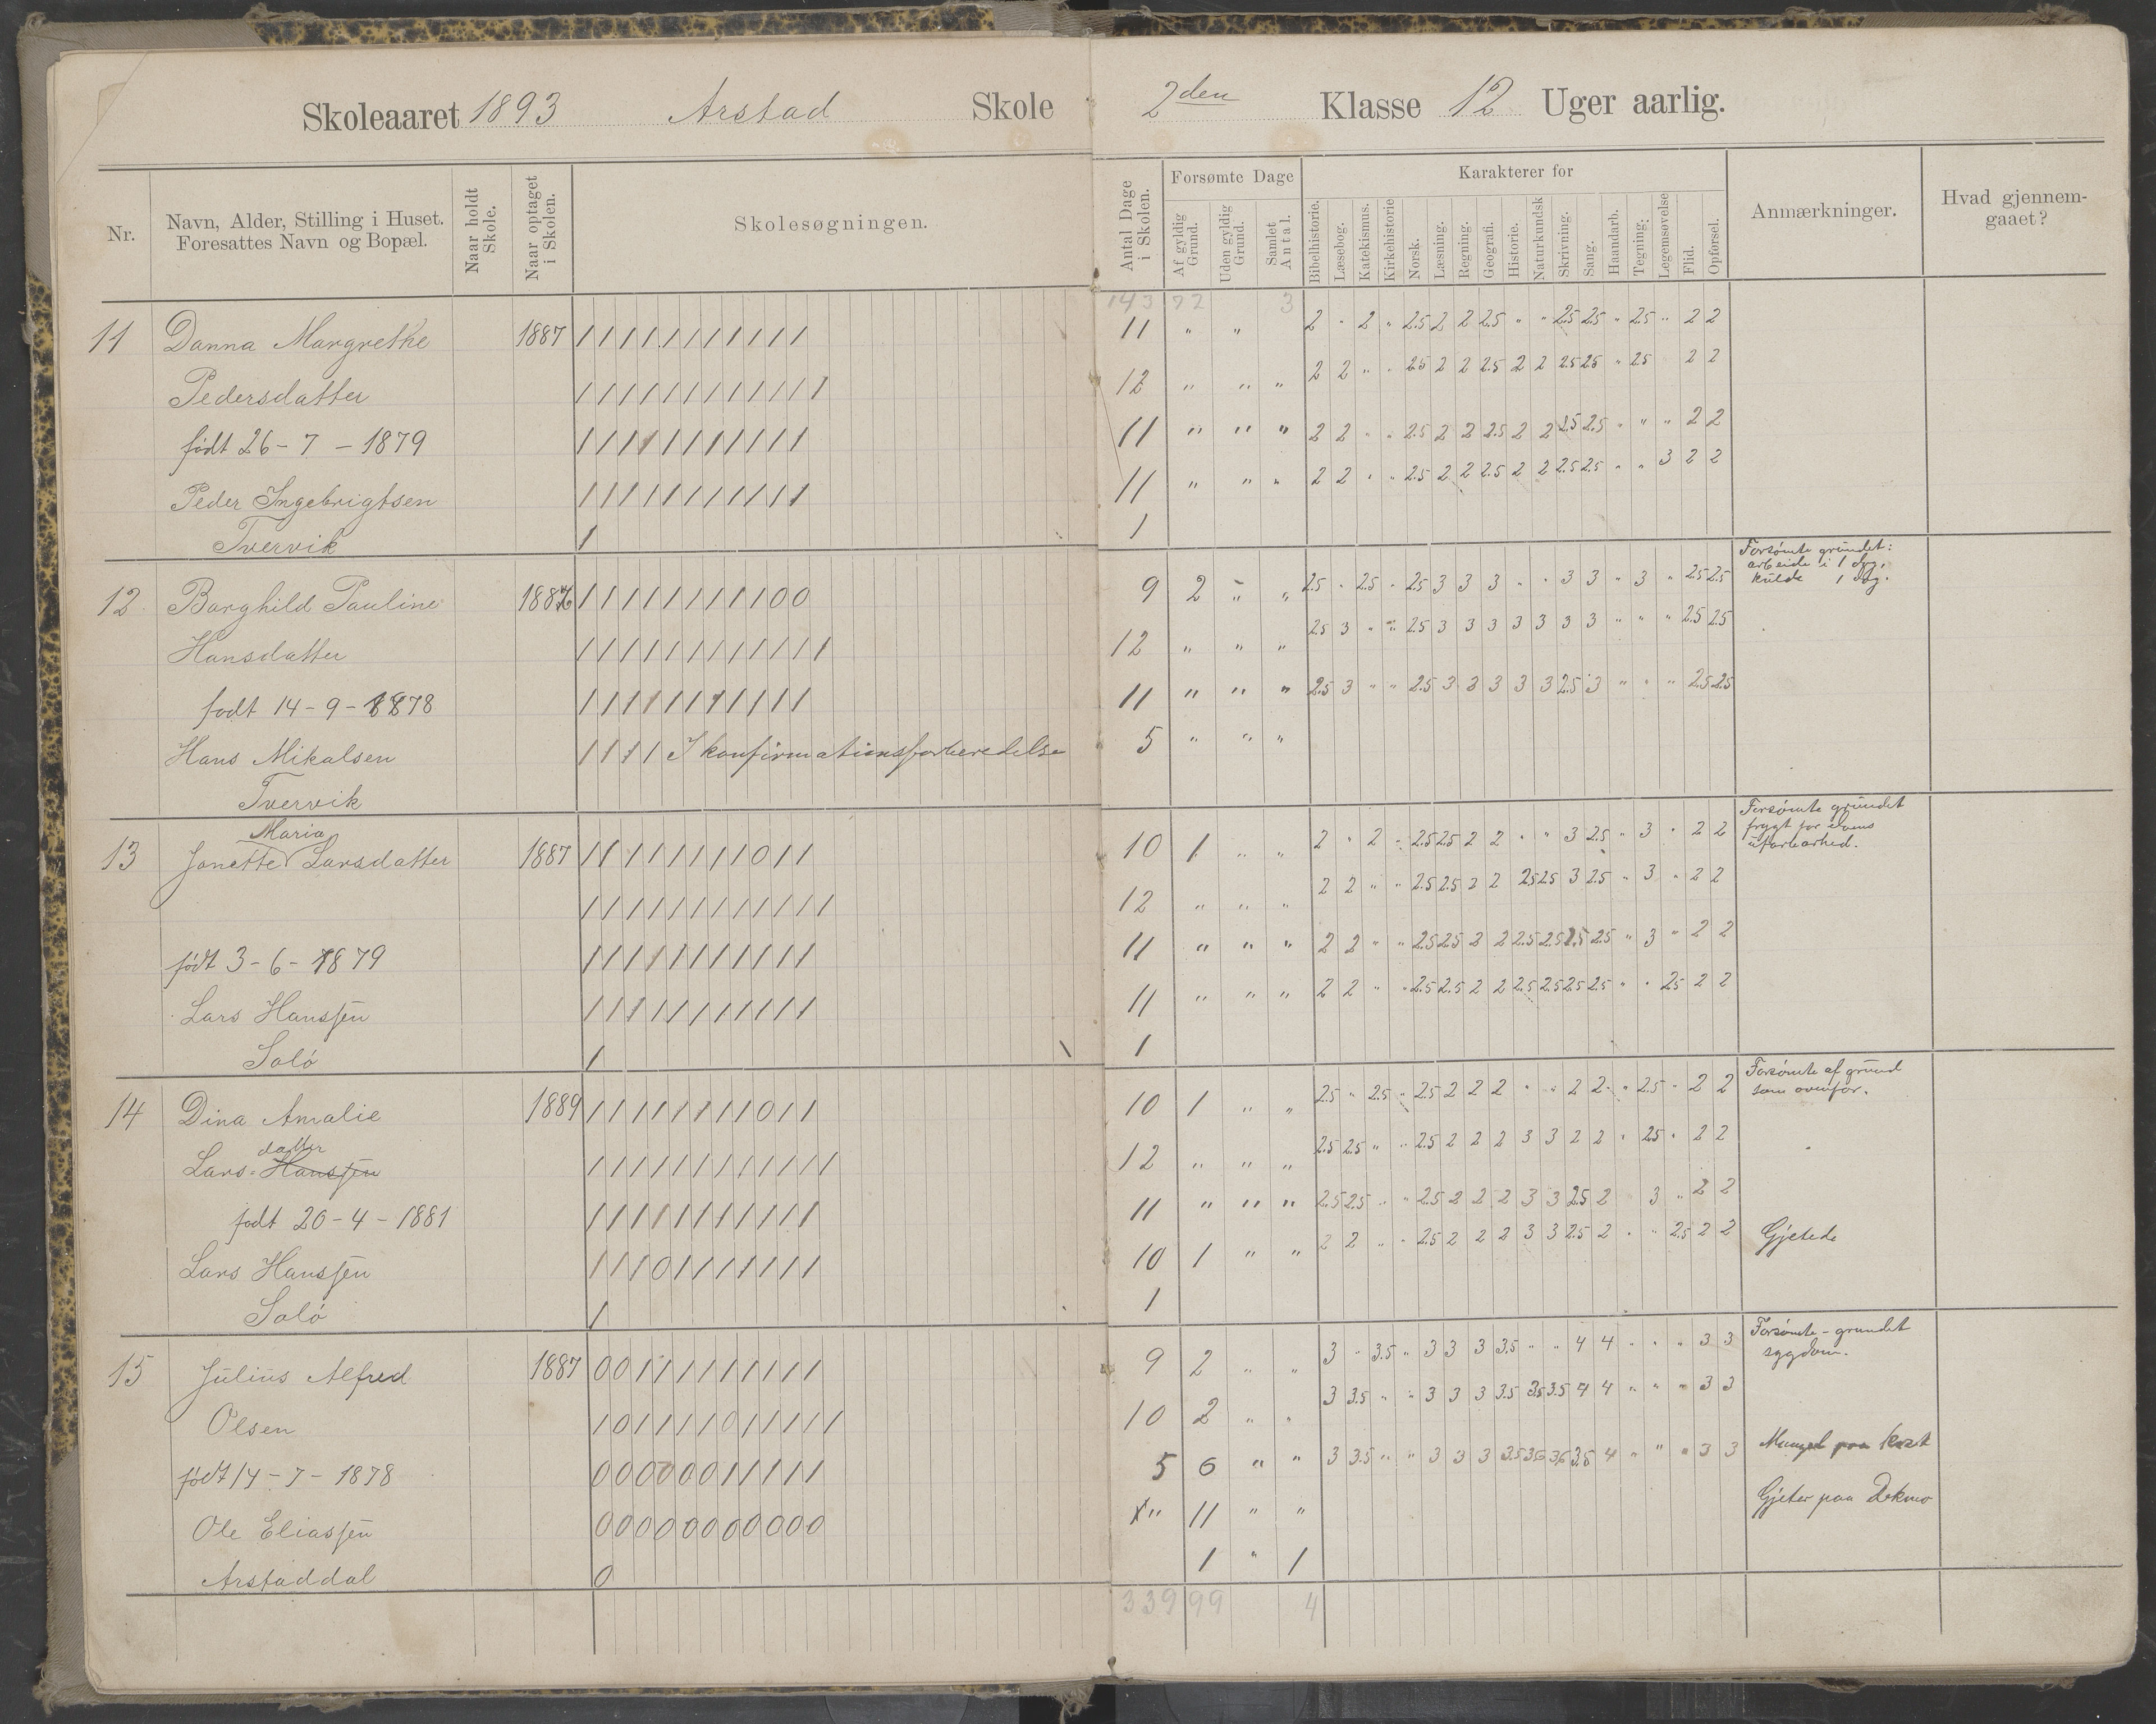 Skoleaaret 1893 Arstad Skole 2den Klasse 12 Uger aarlig.
Nr.
Navn, Alder, Stilling i Huset.
Foresattes Navn og Bopæl.
Naar holdt
Skole.
Naar optaget
i Skolen.
Skolesøgningen.
Antal Dage
i Skolen.
Forsømte Dage
Af gyldig
Grund.
Uden gyldig
Grund.
Samlet
Antal.
Karakterer for
Bibelhistorie.
Læsebog.
Katekismus.
Kirkehistorie
Norsk.
Læsning.
Regning.
Geografi.
Historie.
Naturkundsk
Skrivning.
Sang.
Haandarb.
Tegning.
Legemsøvelse
Flid.
Opførsel.
Anmærkninger.
Hvad gjennem-
gaaet?
143 72 3
11 Danna Margrethe 1887 11111111111 11 " " 2 " 2 " 2.5 2 2 2.5 " " 2.5 2.5 " 2.5 " 2 2
Pedersdatter 111111111111 12 " " " 2 2 " " 2.5 2 2 2.5 2 2 2.5 2.5 " 2.5 2 2
født 26-7-1879 11111111111 11 " " " 2 2 " " 2.5 2 2 2.5 2 2 2.5 2.5 " " " 2 2
Peder Ingebrigtsen 11111111111 11 " " " 2 2 " " 2.5 2 2 2.5 2 2 2.5 2.5 " " 3 2 2
Tvervik 1 1
12 Borghild Pauline 1887 11111111100 9 2 " " 2.5 " 2.5 " 2.5 3 3 3 " " 3 3 " 3 " 2.5 2.5
Forsømte grundet:
arbeide i 1 dag,
kulde 1 dag.
Hansdatter 111111111111 12 " " " 2.5 3 " " 2.5 3 3 3 3 3 3 3 " " " 2.5 2.5
født 14-9-1878 11111111111 11 " " " 2.5 3 " " 2.5 3 3 3 3 3 2.5 3 " " " 2.5 2.5
Hans Mikalsen 1111 I konfirmationsforberedelse 5 " " "
Tvervik
Maria
13 Janette Larsdatter 1887 11111111011 10 1 " " 2 " 2 " 2.5 2.5 2 2 " " 3 2.5 " 3 " 2 2
Forsømte grundet
frygt for
111111111111 12 " " " 2 2 " " 2.5 2.5 2 2 2.5 2.5 3 2.5 " 3 " 2 2
født 3-6-1879 11111111111 11 " " " 2 2 " " 2.5 2.5 2 2 2.5 2.5 2.5 2.5 " 3 " 2 2
Lars Hanssen 11111111111 11 " " " 2 2 " " 2.5 2.5 2 2 2.5 2.5 2.5 2.5 " " 2.5 2 2
Solö 1 1
14 Dina Amalie 1889 11111111011 10 1 " " 2.5 " 2.5 " 2.5 2 2 2 " " 2 2 " 2.5 " 2 2
Forsømte af grund
som ovenfor.
datter
Lars Hanssen 111111111111 12 " " " 2.5 2.5 " " 2.5 2 2 2 3 3 2 2 " 2.5 " 2 2
født 20-4-1881 11111111111 11 " " " 2.5 2.5 " " 2.5 2 2 2 3 3 2.5 2 3 " 2 2
Lars Hanssen 11101111111 10 1 " " 2 2 " " 2.5 2 2 2 3 3 2.5 2 " " 2.5 2 2 Gjetede
Solö 1 1
15 Julius Alfred 1887 00111111111 9 2 " " 3 " 3.5 " 3 3 3 3.5 " " 4 4 " " " 3 3
Forsømte - grundet
sygdom.
Olsen 101111011111 10 2 " " 3 3.5 " " 3 3 3 3.5 3.5 3.5 4 4 " " " 3 3
født 14-7-1878 00000011111 5 6 " " 3 3.5 " " 3 3 3 3.5 3.5 3.5 3.5 4 " " " 3 3 Mangel paa kost
Ole Eliassen 00000000000 " 11 " " Gjeter paa
Arstaddal 0 1 " 1
339 99 4